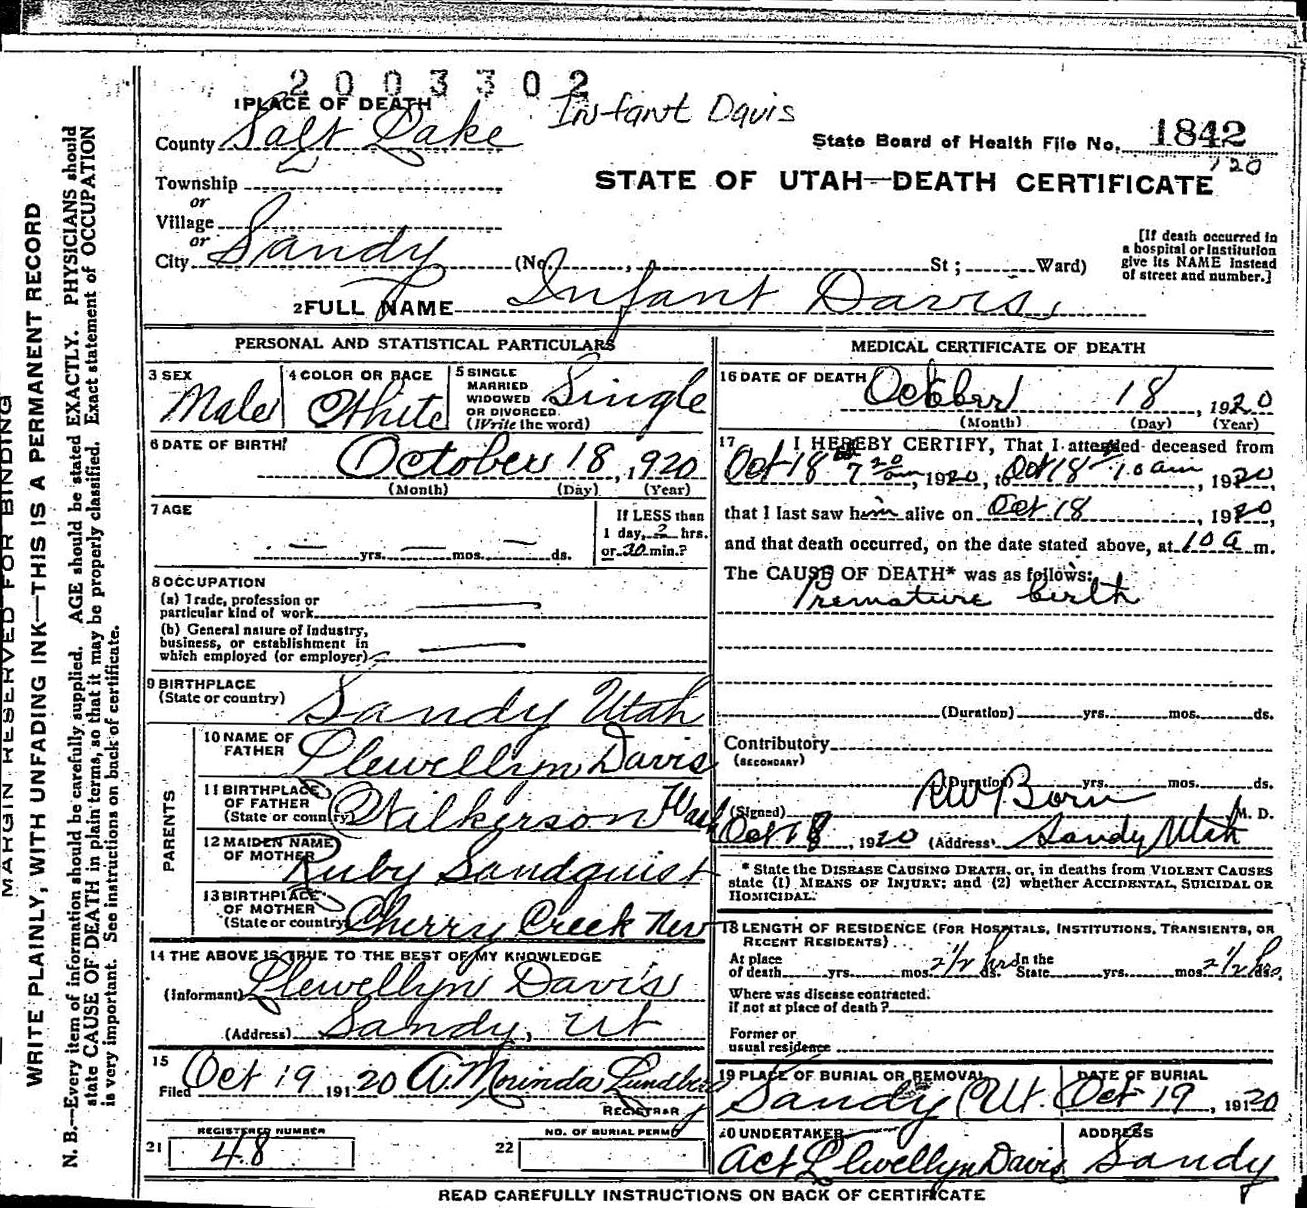 2003302
1 PLACE OF DEATH Infant Davis
County Salt Lake
State Board of Health File No. 1842
120
Township
or
Village
or
City Sandy (No. , St ; Ward)
STATE OF UTAH—DEATH CERTIFICATE
[If death occurred in
a hospital or institution
give its NAME instead
of street and number.]
2 FULL NAME Infant Davis
PERSONAL AND STATISTICAL PARTICULARS
3 SEX Male
4 COLOR OR RACE White
5 SINGLE
MARRIED
WIDOWED
OR DIVORCED
(Write the word) Single
6 DATE OF BIRTH
October 18, 1920
(Month) (Day) (Year)
7 AGE
— yrs. — mos. — ds.
If LESS than
1 day, 2 hrs.
or 30 min.?
8 OCCUPATION
(a) Trade, profession or
particular kind of work
(b) General nature of industry,
business, or establishment in
which employed (or employer)
9 BIRTHPLACE
(State or country) Sandy Utah
PARENTS
10 NAME OF
FATHER Llewellyn Davis
11 BIRTHPLACE
OF FATHER
(State or country) Wilkerson Wash
12 MAIDEN NAME
OF MOTHER Ruby Sandquist
13 BIRTHPLACE
OF MOTHER
(State or country) Cherry Creek Nev
14 THE ABOVE IS TRUE TO THE BEST OF MY KNOWLEDGE
(Informant) Llewellyn Davis
(Address) Sandy, Ut
15
Filed Oct 19 191 20 A. Morinda Lundberg
REGISTRAR
REGISTERED NUMBER
21 48
NO. OF BURIAL PERMIT
22
MEDICAL CERTIFICATE OF DEATH
16 DATE OF DEATH October 18, 1920
(Month) (Day) (Year)
17 I HEREBY CERTIFY, That I attended deceased from
Oct 18 7 20 am, 1920, to Oct 18 10 am, 1920,
that I last saw him alive on Oct 18, 1920,
and that death occurred, on the date stated above, at 10 a m.
The CAUSE OF DEATH* was as follows:
Premature birth
(Duration) yrs. mos. ds.
Contributory
(SECONDARY)
(Duration) yrs. mos. ds.
(Signed) M. D.
Oct 18, 1920 (Address) Sandy Utah
* State the DISEASE CAUSING DEATH, or, in deaths from VIOLENT CAUSES
state (1) MEANS OF INJURY; and (2) whether ACCIDENTAL, SUICIDAL OR
HOMICIDAL.
18 LENGTH OF RESIDENCE (FOR HOSPITALS, INSTITUTIONS, TRANSIENTS, OR
RECENT RESIDENTS)
At place
of death yrs. mos. 2 1/2 hrs ds. In the
State yrs. mos. 2 1/2 hrs ds.
Where was disease contracted.
if not at place of death?
Former or
usual residence
19 PLACE OF BURIAL OR REMOVAL
Sandy Ut.
DATE OF BURIAL
Oct 19, 1920
20 UNDERTAKER
Act Llewellyn Davis
ADDRESS
Sandy
READ CAREFULLY INSTRUCTIONS ON BACK OF CERTIFICATE
MARGIN RESERVED FOR BINDING
WRITE PLAINLY, WITH UNFADING INK—THIS IS A PERMANENT RECORD
N. B.—Every item of information should be carefully supplied. AGE should be stated EXACTLY. PHYSICIANS should
state CAUSE OF DEATH in plain terms, so that it may be properly classified. Exact statement of OCCUPATION
is very important. See instructions on back of certificate.